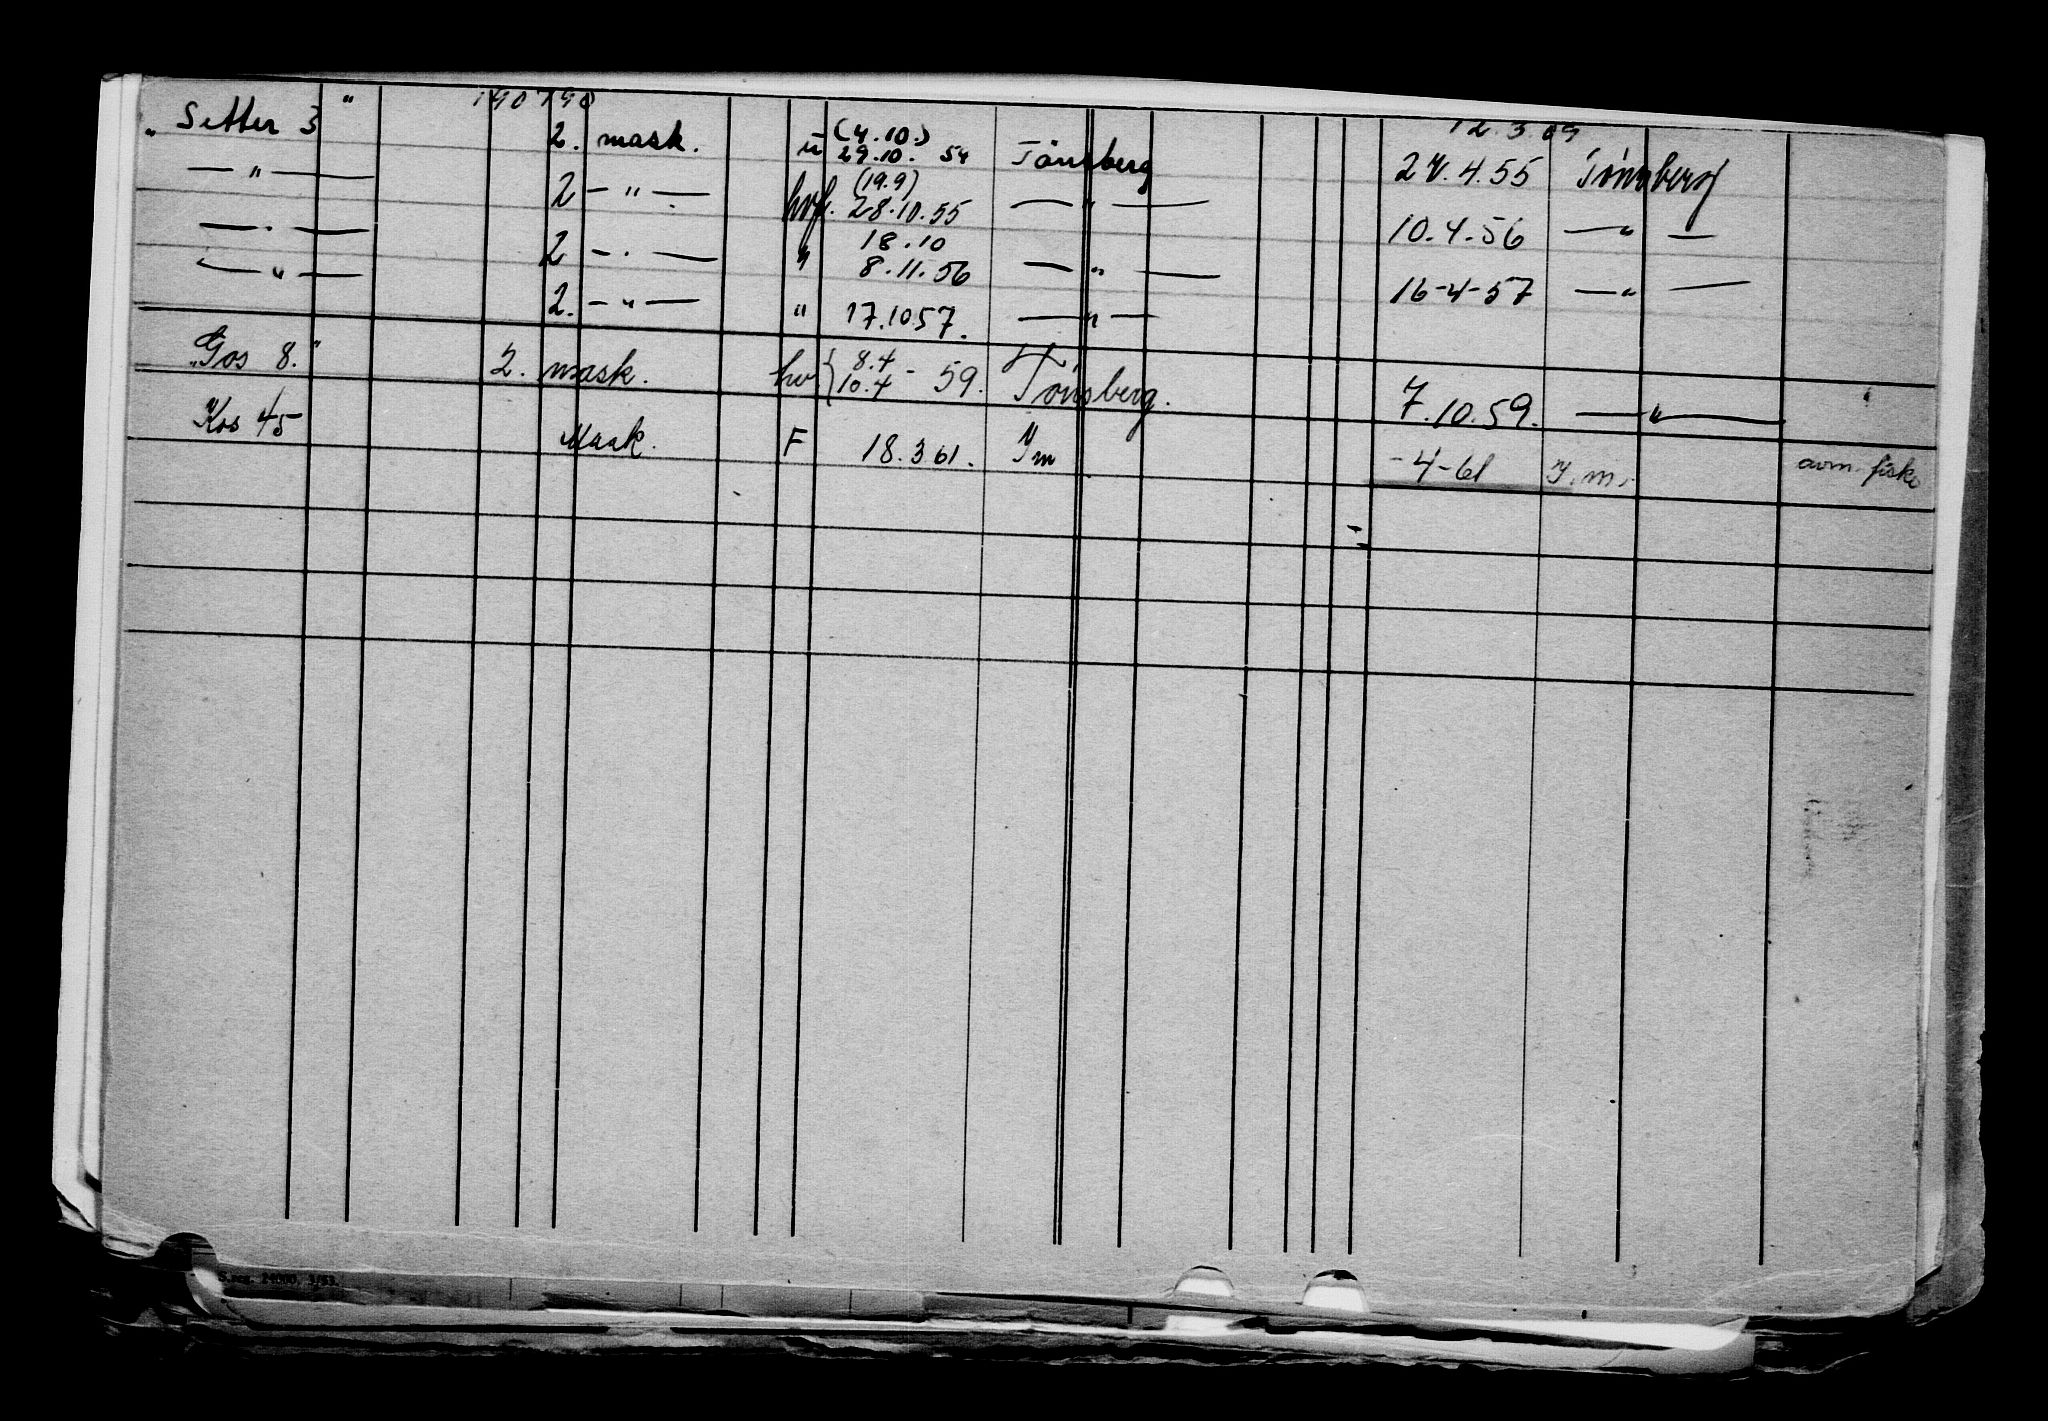 190790 12.3.09
„Setter 3" 2. mask. u (4.10.) 29.10. 54 Tönsberg 27.4.55 Tönsberg
— " — 2 — " — hvf. (19.9) 28.10.55 — " — 10.4.56 — " —
— " — 2 — " — " 18.10 8.11.56 — " — 16-4-57 — " —
— " — 2. — " — " 17.10.57. — " —
„Gos 8." 2. mask. hv { 8.4 10.4 - 59. Tönsberg. 7.10.59. — " —
"Kos 45 Mask. F 18.3.61. Ym -4-61 Y.m. avm. fiske
S.reg. 24000. 3/53.